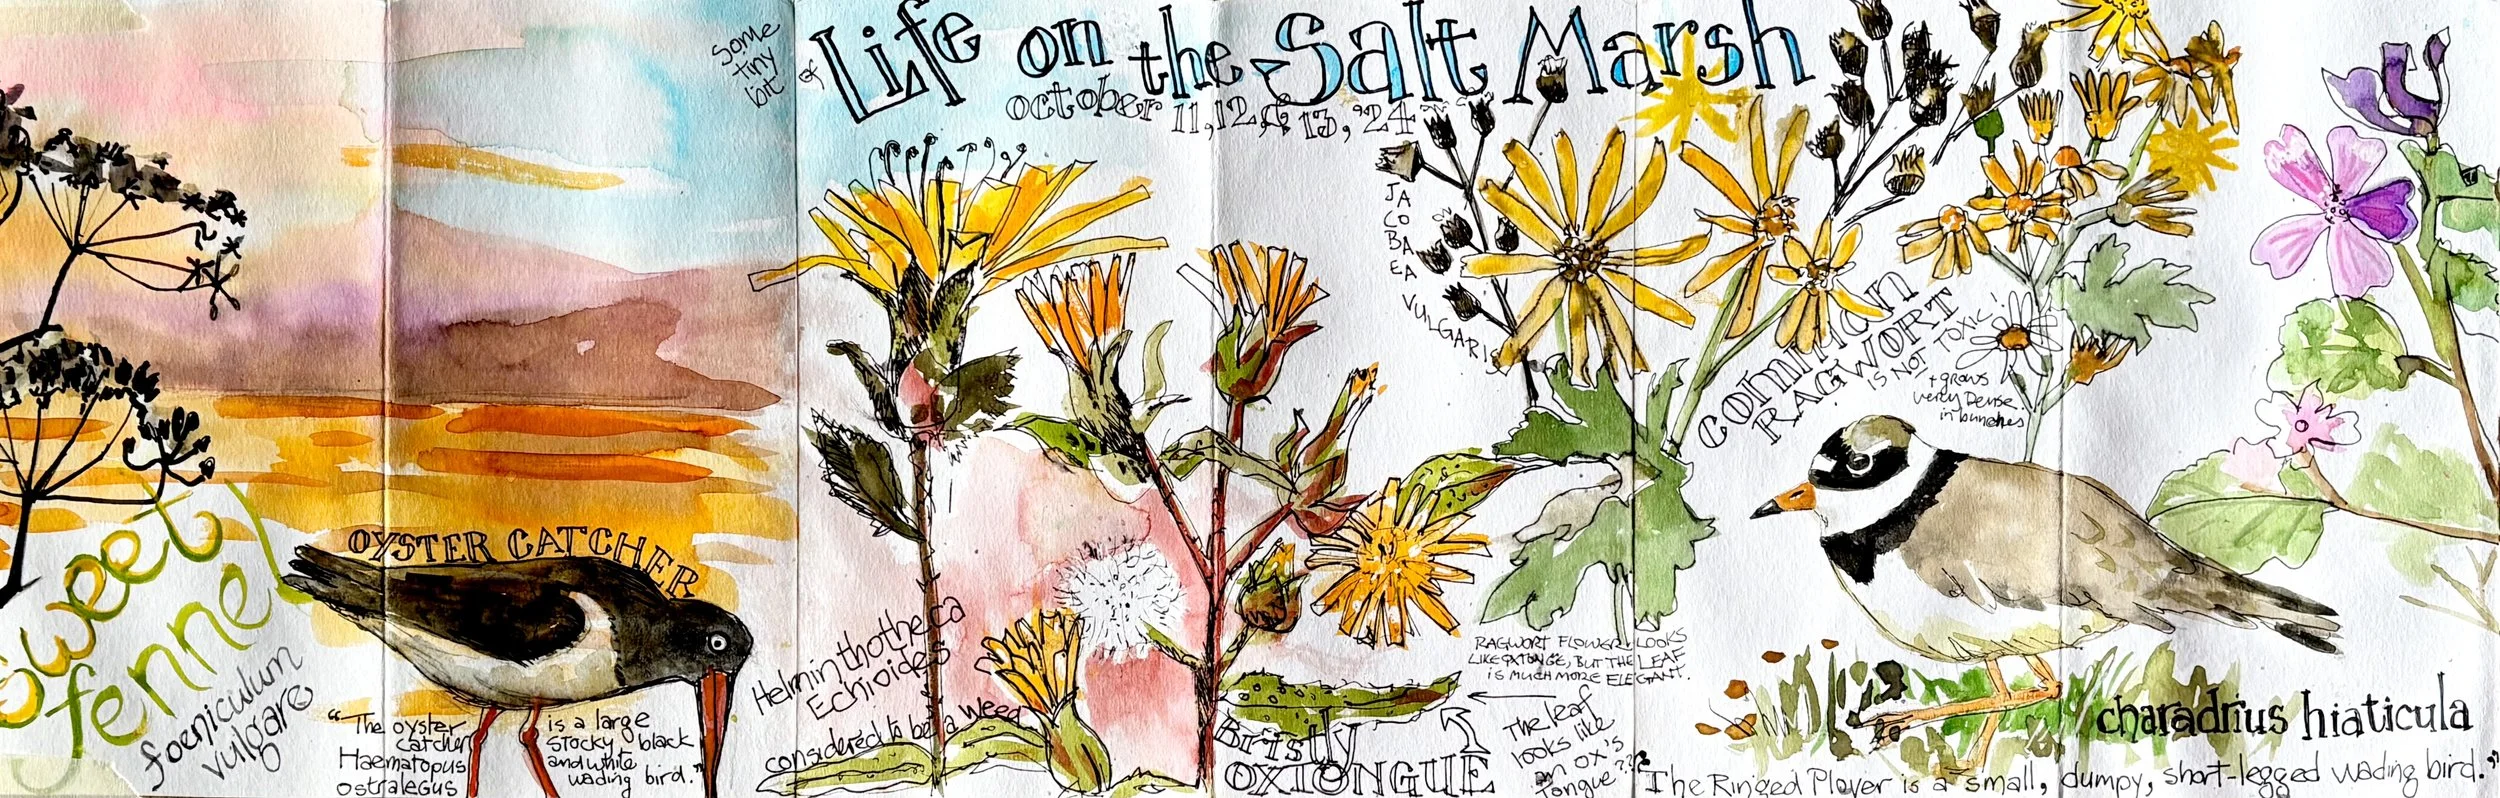 some
tiny
bit
of Life on the Salt Marsh
october 11, 12, & 13, '24
sweet
fennel
foeniculum
vulgare
OYSTER CATCHER
"The oyster
catcher
Haematopus
ostralegus
is a large
stocky black
and white
wading bird."
Helminthotheca
Echioides
considered to be a weed
Bristly
OXTONGUE
The leaf
looks like
an ox's
tongue???
JA
CO
BA
EA
VULGARIS
COMMON
RAGWORT
IS NOT TOXIC!
+ grows
very Dense
in bunches
RAGWORT FLOWER LOOKS
LIKE OXTONGE, BUT THE LEAF
IS MUCH MORE ELEGANT.
charadrius hiaticula
"The Ringed Plover is a small, dumpy, short-legged wading bird."